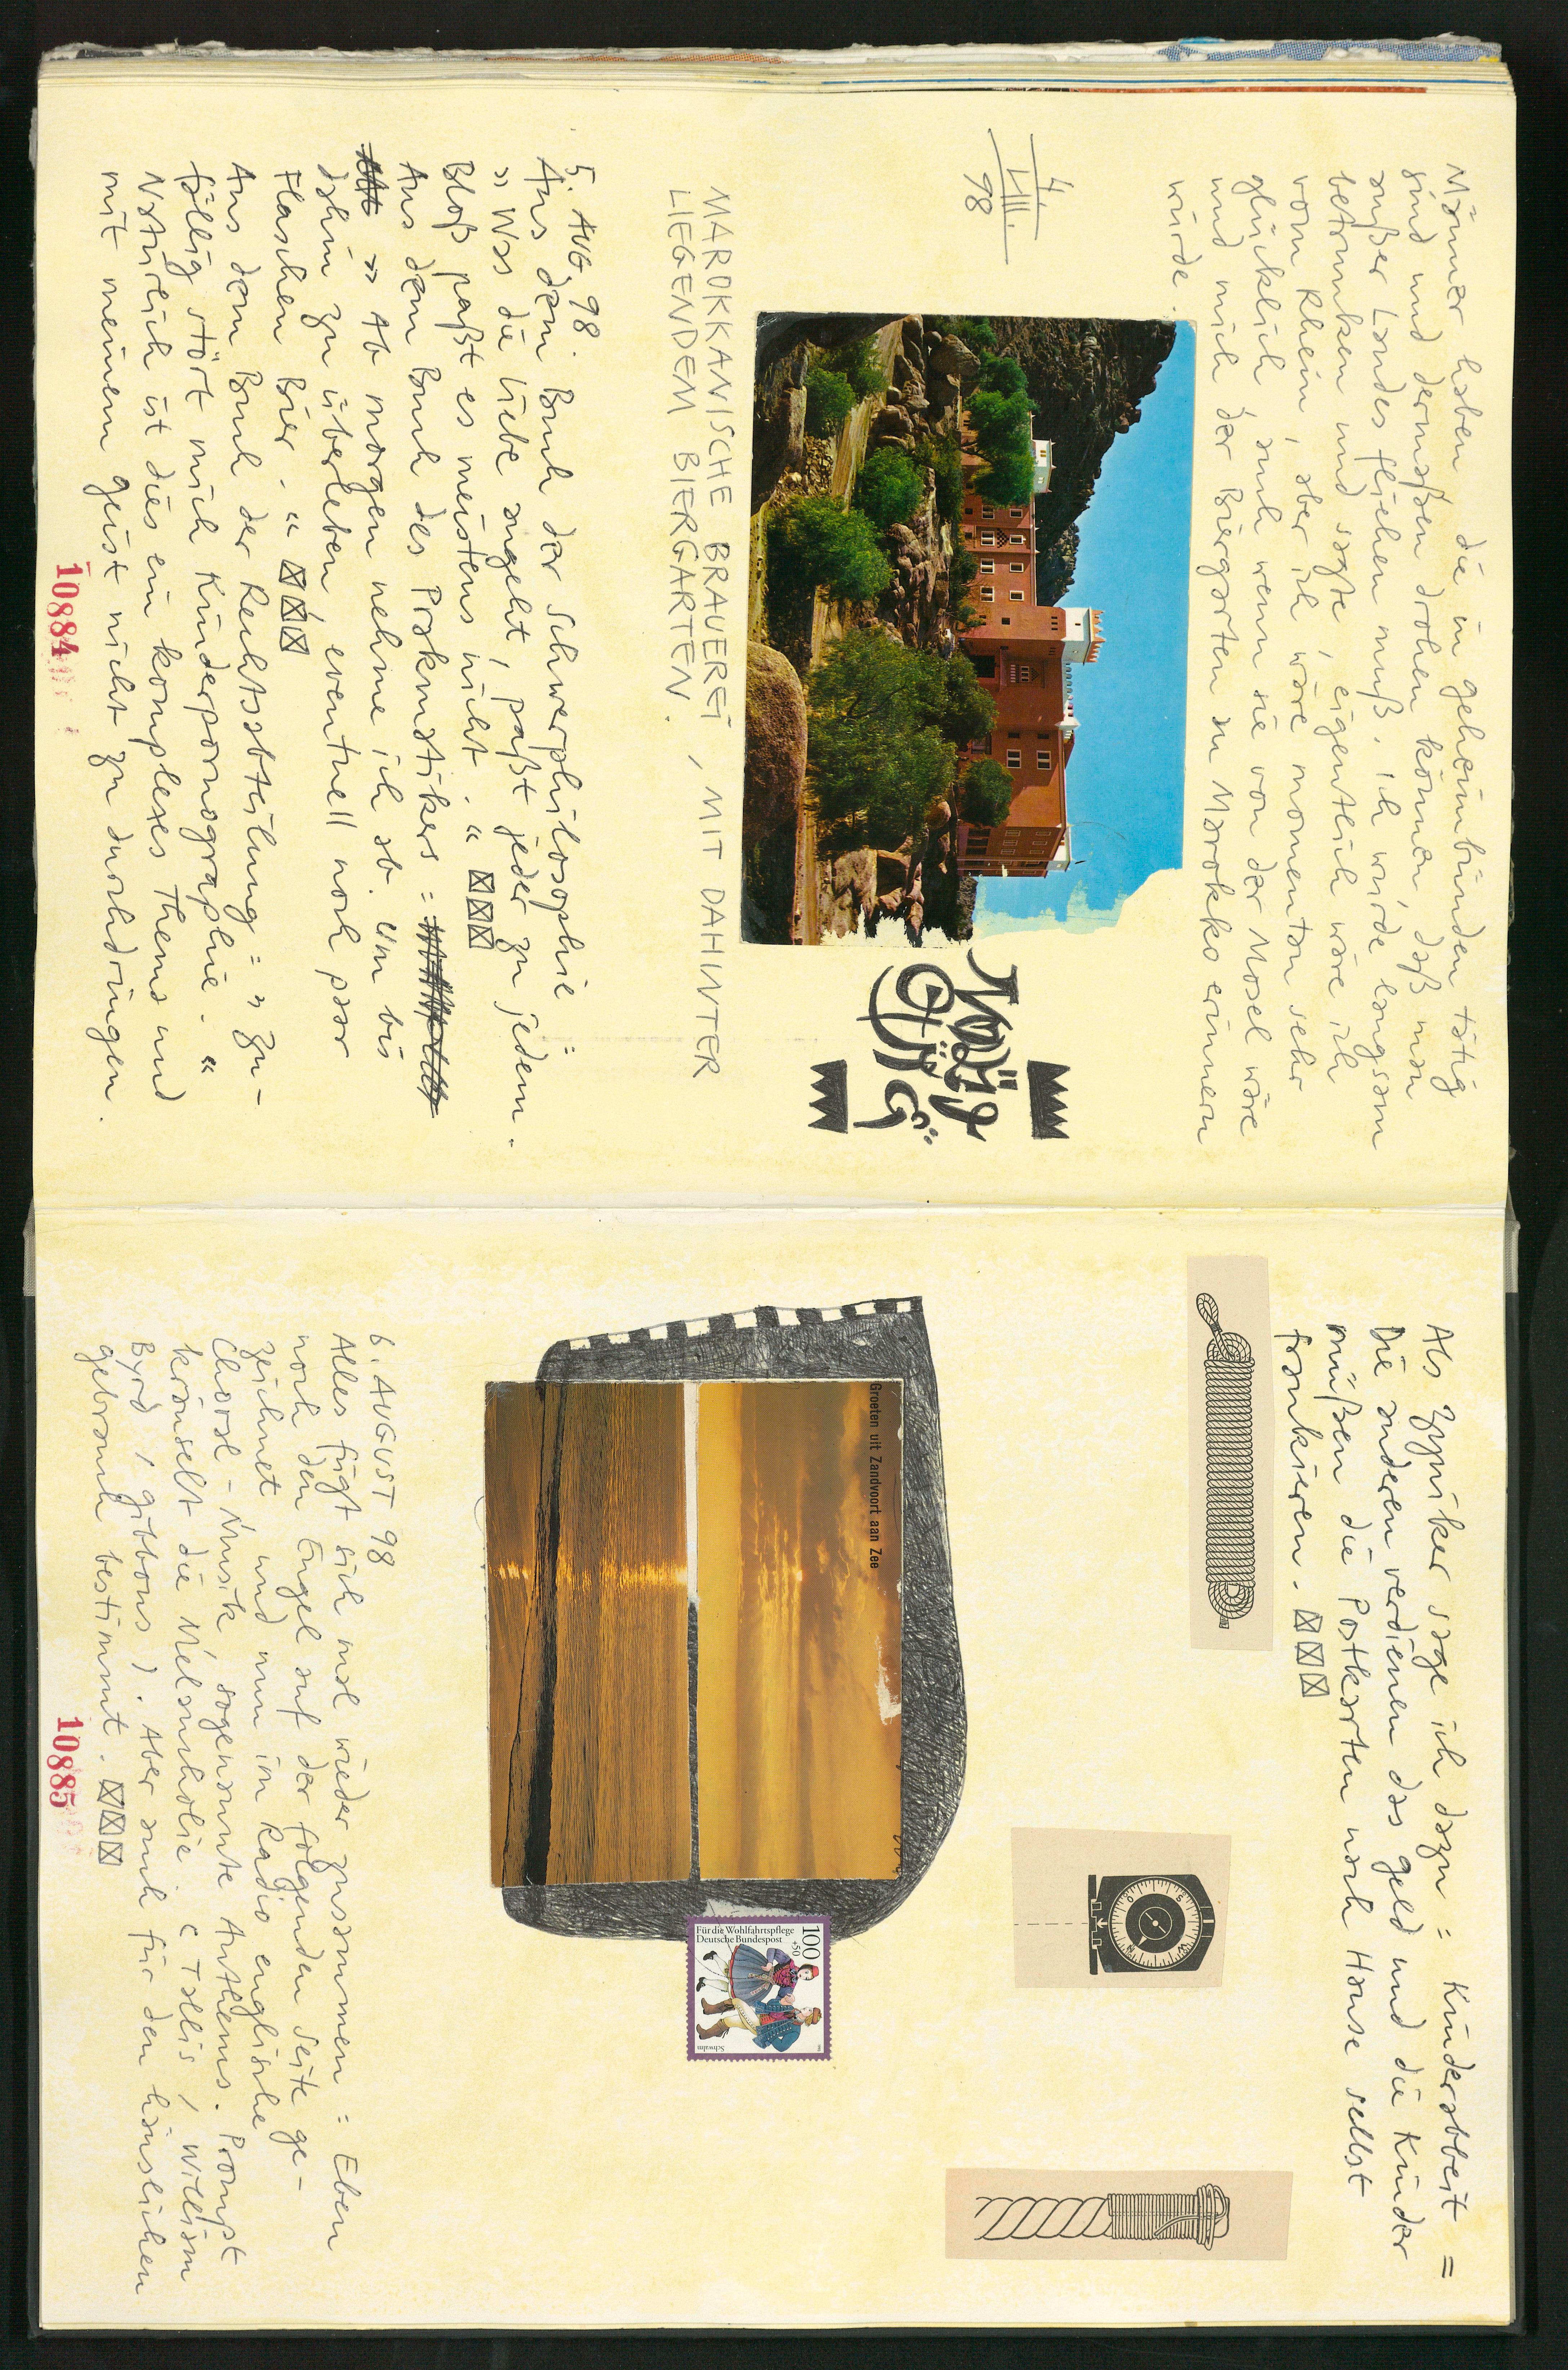 Männer haben die in geheimbünden tätig
sind und dermaßen drohen können, daß man
außer Landes fliehen muß. ich würde langsam
betrunken und sagte, eigentlich wäre ich
vom Rhein, aber ich wäre momentan sehr
glücklich auch wenn sie von der Mosel wäre
und mich der Biergarten an Marokko erinnern
würde.
4.
VIII.
98
MAROKKANISCHE BRAUEREI, MIT DAHINTER
LIEGENDEM BIERGARTEN.
5. AUG. 98.
Aus dem Buch der Schwerphilosophie =
» Was die liebe angeht, paßt jeder zu jedem.
Bloß paßt es meistens nicht. «
Aus dem Buch des Pragmatikers =
» Ab morgen nehme ich ab. Um bis
dahin zu überleben, eventuell noch paar
Flaschen Bier. «
Aus dem Buch der Rechtsabteilung = » Zu-
fällig stört mich Kinderpornographie. «
Natürlich ist dies ein komplexes Thema und
mit meinem geist nicht zu durchdringen.
10884
Als Zyniker sage ich dazu = Kinderarbeit =
Die anderen verdienen das geld und die Kinder
müßen die Postkarten nach Hause selbst
frankieren.
Groeten uit Zandvoort aan Zee
100
+50
Für die Wohlfahrtspflege
Deutsche Bundespost
Schwalm
6. AUGUST 98
Alles fügt sich mal wieder zusammen = Eben
noch den Engel auf der folgenden Seite ge-
zeichnet und nun im Radio englische
Choral-Musik, sogenannte Anthems. Prompt
kränselt die Melancholie (Tallis, William
Byrd, gibbons). Aber auch für den häuslichen
gebrauch bestimmt.
10885